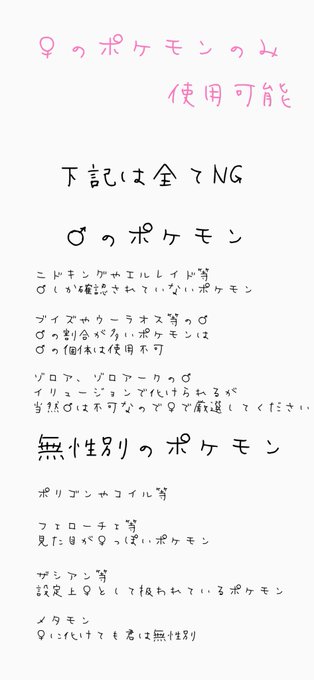 ♀のポケモンのみ
使用可能
下記は全てNG
♂のポケモン
ニドキングやエルレイド等
♂しか確認されていないポケモン
ブイズやウーラオス等の♂
♂の割合が多いポケモンは
♂の個体は使用不可
ゾロア、ゾロアークの♂
イリュージョンで化けられるが
当然♂は不可なので♀で厳選してください
無性別のポケモン
ポリゴンやコイル等
フェローチェ等
見た目が♀っぽいポケモン
ザシアン等
設定上♀として扱われているポケモン
メタモン
♀に化けても君は無性別